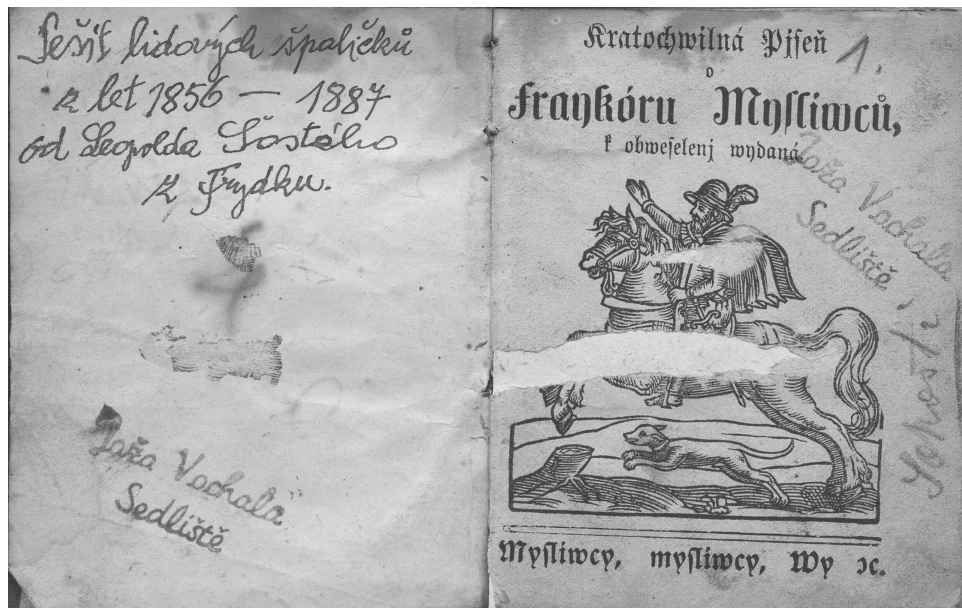 Sešit lidových špalíčků
z let 1856 — 1887
od Leopolda Šostého
z Frýdku.
Jaža Vachala
Sedliště
Kratochwilná Pjseň
1.
o
Fraykóru Mysliwců,
k obweselenj wydaná.
Jaža Vachala
Sedliště
Mysliwcy, mysliwcy, Wy ꝛc.